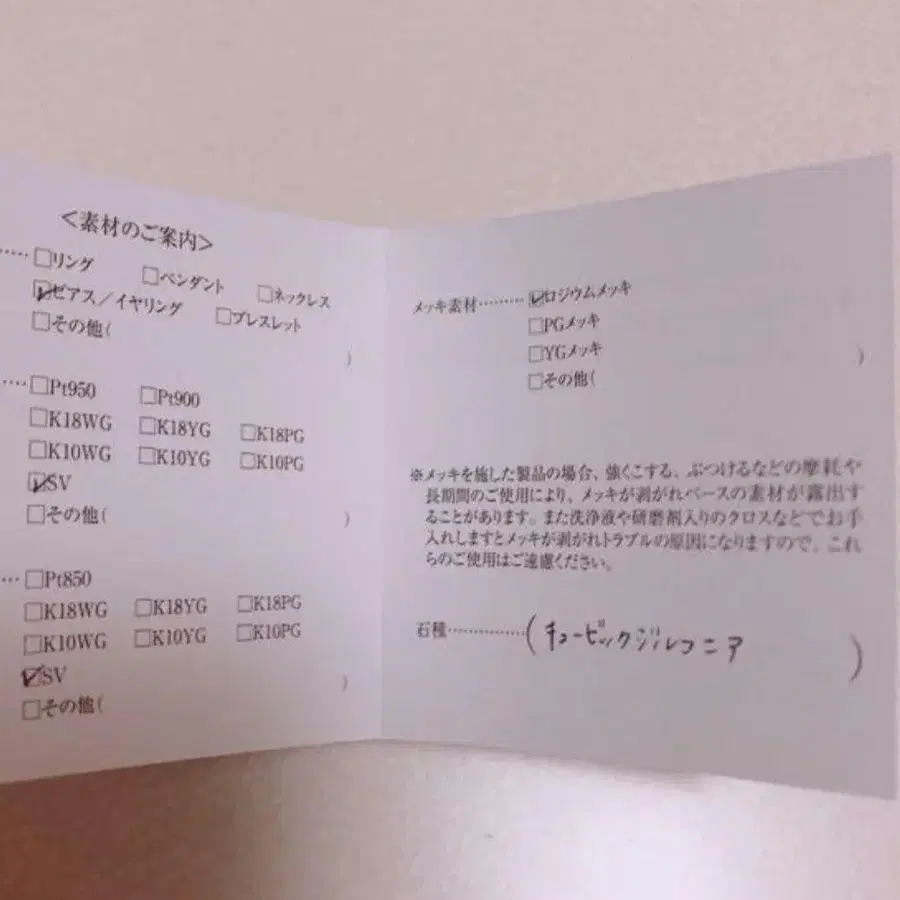 <素材のご案内>
……□リング □ペンダント □ネックレス
☑ピアス/イヤリング □ブレスレット
□その他( )
……□Pt950 □Pt900
□K18WG □K18YG □K18PG
□K10WG □K10YG □K10PG
☑SV
□その他( )
…□Pt850
□K18WG □K18YG □K18PG
□K10WG □K10YG □K10PG
☑SV
□その他( )
メッキ素材………☑ロジウムメッキ
□PGメッキ
□YGメッキ
□その他( )
※メッキを施した製品の場合、強くこする、ぶつけるなどの摩耗や
長期間のご使用により、メッキが剥がれベースの素材が露出す
ることがあります。また洗浄液や研磨剤入りのクロスなどでお手
入れしますとメッキが剥がれトラブルの原因になりますので、これ
らのご使用はご遠慮ください。
石種……………(チュービックジルコニア)